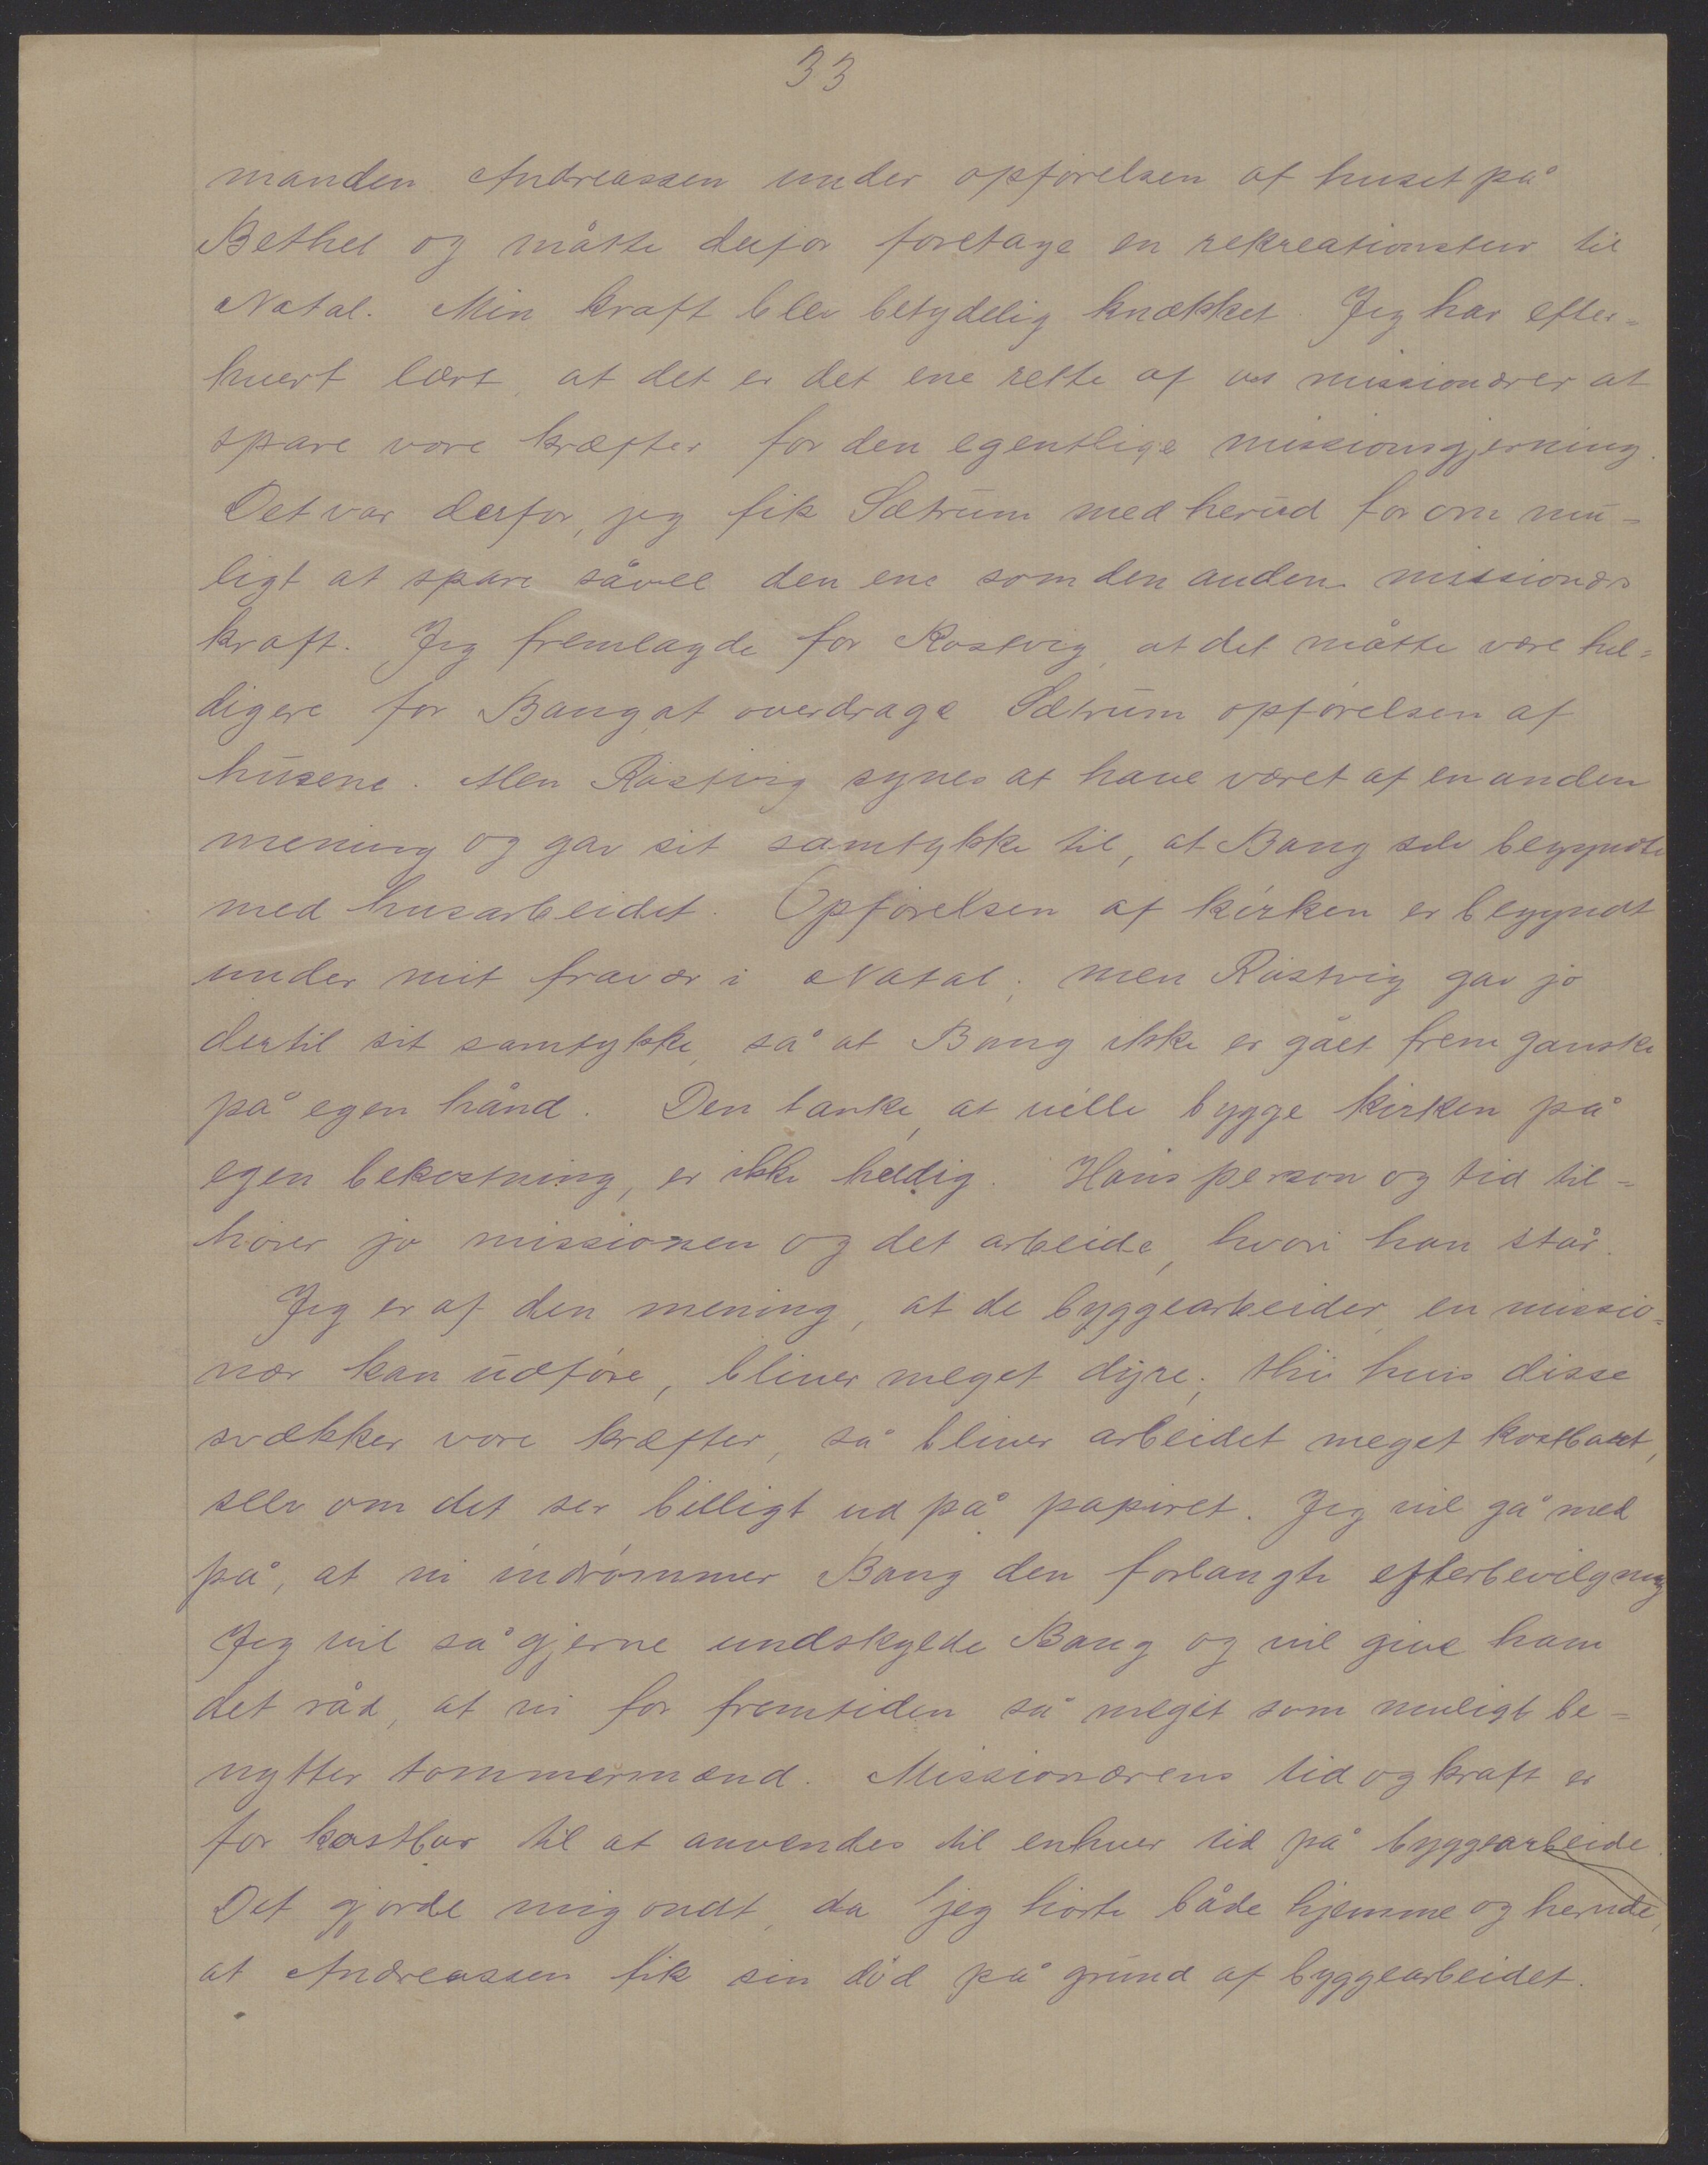 33
manden Andreassen under opførelsen af huset på
Bethel og måtte derfor foretage en rekreationstur til
Natal. Min kraft blev betydelig knækket. Jeg har efter=
hvert lært, at det er det ene rette af os missionærer at
spare vore kræfter for den egentlige missionsgjerning.
Det var derfor, jeg fik Sætrum med herud for om mu=
ligt at spare såvel den ene som den anden missionærs
kraft. Jeg fremlagde for Røstvig, at det måtte være hel=
digere for Bang at overdrage Sætrum opførelsen af
husene. Men Røstvig synes at have været af en anden
mening og gav sit samtykke til, at Bang selv begyndte
med husarbeidet. Opførelsen af kirken er begyndt
under mit fravær i Natal; men Røstvig gav jo
dertil sit samtykke, så at Bang ikke er gået frem ganske
på egen hånd. Den tanke, at ville bygge kirken på
egen bekostning, er ikke heldig. Hans person og tid til=
hører jo missionen og det arbeide, hvori han står.
Jeg er af den mening, at de byggearbeider, en missio=
nær kan udføre, bliver meget dyre; thi hvis disse
svækker vore kræfter, så bliver arbeidet meget kostbart,
selv om det ser billigt ud på papiret. Jeg vil gå med
på, at vi indrømmer Bang den forlangte efterbevilgning
Jeg vil så gjerne undskylde Bang og vil give ham
det råd, at vi for fremtiden så meget som muligt be=
nytter tømmermænd. Missionærens tid og kraft er
for kostbar til at anvendes til enhver tid på byggearbeide.
Det gjorde mig ondt, da jeg hørte både hjemme og herude,
at Andreassen fik sin død på grund af byggearbeidet.